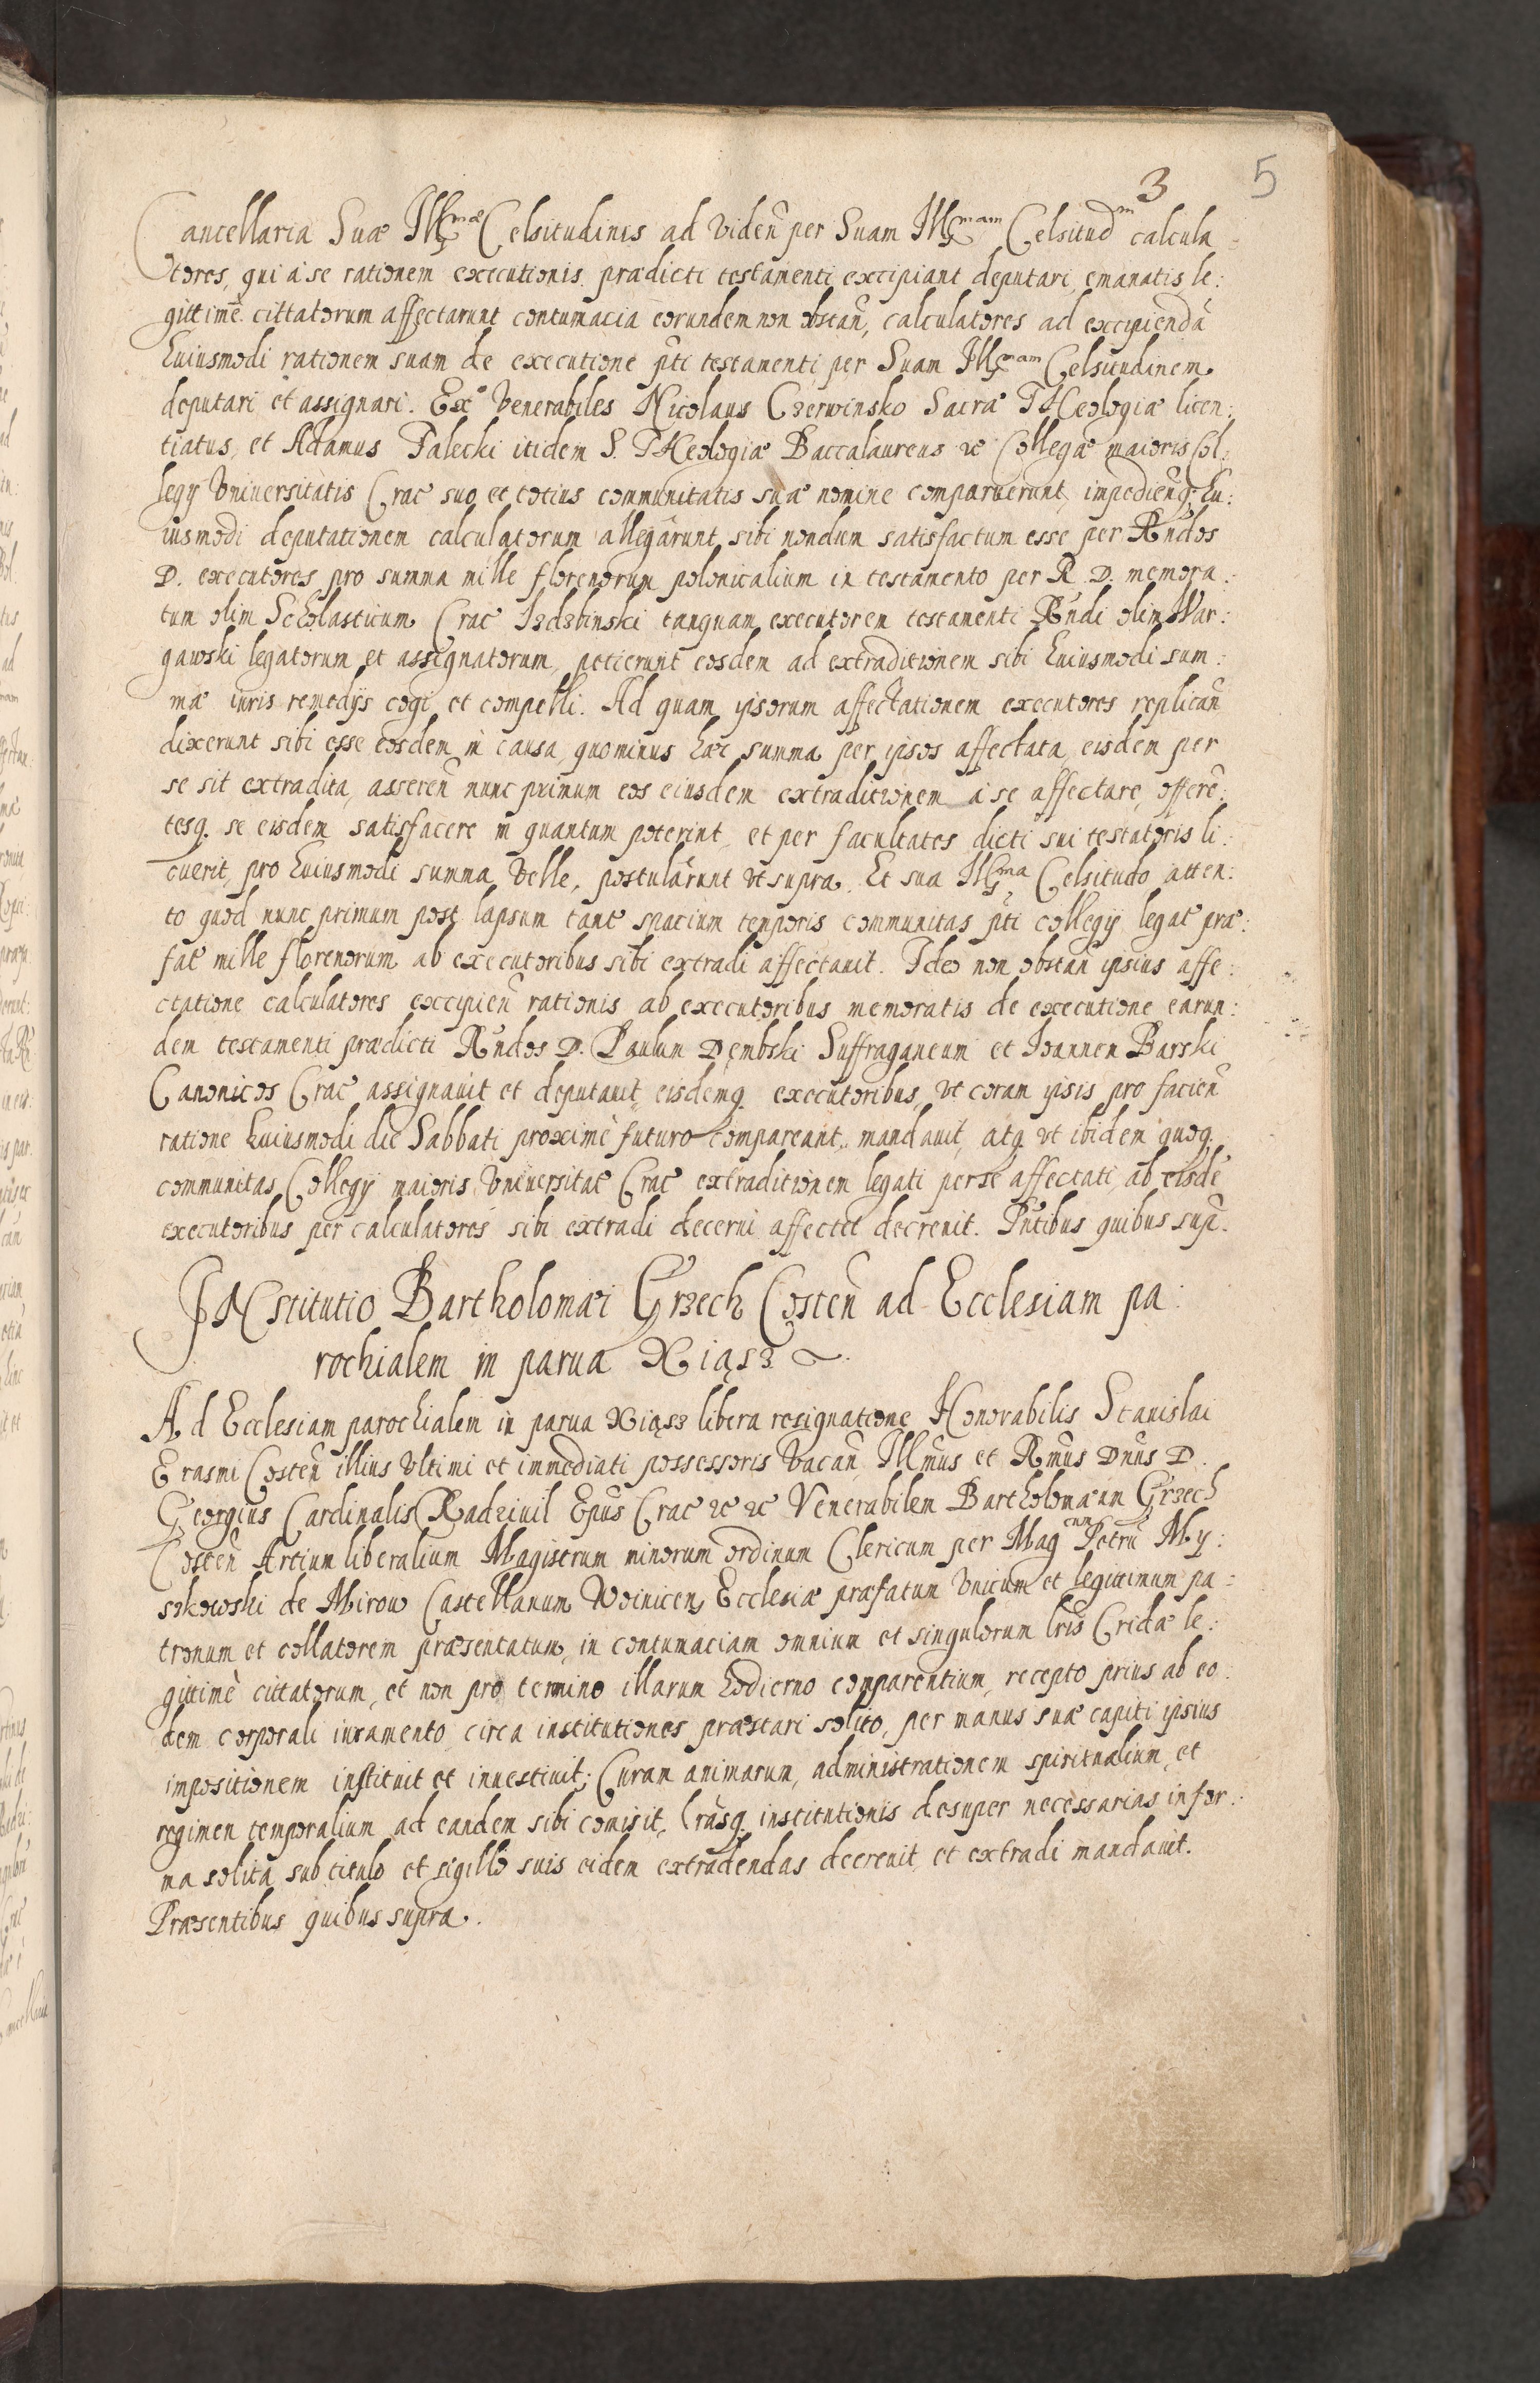 3 5
Cancellaria Suæ Illmæ Celsitudinis ad viden̄ per Suam Illmam Celsitudm calcula
tores, qui à se rationem executionis prædicti testamenti excipiant deputari, emanatis le:
gittimè cittatorum affectarunt contumacia eorundem non obstan̄, calculatores ad excipiendā
huiusmodi rationem suam de executione p̄ti testamenti per Suam Illmam Celsitudinem
deputari et assignari. Exº Venerabiles Nicolaus Czerwinsko Sacræ THeologiæ licen:
tiatus, et Adamus Falecki itidem S. THeologiæ Baccalaureus &c Collegæ maioris Col:
legij Vniuersitatis Crac suo et totius communitatis suæ nomine comparuerunt, impedien̄q; hu:
iusmodi deputationem calculatorum allegârunt sibi nondum satisfactum esse per Rn̄dos
D. executores pro summa mille florenorum polonicalium in testamento per R. D. memora:
tum olim Scholasticum Crac Izdzbinski tanquam executorem testamenti Rn̄di olim War:
gawski legatorum et assignatorum, petierunt eosdem ad extraditionem sibi huiusmodi sum:
mæ iuris remedijs cogi et compelli. Ad quam ipsorum affectationem executores replican̄
dixerunt sibi esse eosdem in causa, quominus hæc summa per ipsos affectata, eisdem per
se sit extradita, asseren̄ nunc primum eos eiusdem extraditionem à se affectare, offerē:
tesq. se eisdem satisfacere in quantum poterint, et per facultates dicti sui testatoris li:
cuerit, pro huiusmodi summa velle, postulârunt vt supra. Et sua Illma Celsitudo atten:
to quod nunc primum post lapsum tant spacium temporis communitas p̄ti collegij legat præ:
fat mille florenorum ab executoribus sibi extradi affectauit. Ideo non obstan̄ ipsius affe:
ctatione calculatores excipien̄ rationis ab executoribus memoratis de executione earun:
dem testamenti prædicti Rn̄dos D. Paulum Dembski Suffraganeum et Ioannem Barski
Canonicos Crac assignauit et deputauit, eisdemq. executoribus, vt coram ipsis pro facien̄
ratione huiusmodi die Sabbati proximè futuro compareant, mandauit, atq. vt ibidem quoq.
communitas Collegij maioris Vniuersitat Crac extraditionem legati per se affectati, ab eisdē
executoribus per calculatores sibi extradi decerni affectet decreuit. Pn̄tibus quibus sup̄.
INstitutio Bartholomæi Grzech Costen̄ ad Ecclesiam pa:
rochialem in parua Xiąsz
Ad Ecclesiam parochialem in parua Xiąsz libera resignatione Honorabilis Stanislai
Erasmi Costen̄ illius vltimi et immediati possessoris vacan̄ Illm̄us et Rm̄us Dn̄us D.
Georgius Cardinalis Radziuil Ep̄us Crac &c &c Venerabilem Bartholomæum Grzech
Costen̄ Artium liberalium Magistrum minorum ordinum Clericum per Magcum Petrū My:
szkowski de Mirow Castellanum Woinicen Ecclesiæ præfatum vnicum et legittimum pa:
tronum et collatorem præsentatum, in contumaciam omnium et singulorum lr̄is Cridæ le:
gittimè cittatorum, et non pro termino illarum hodierno comparentium, recepto prius ab eo
dem corporali iuramento circa institutiones præstari solito, per manus suæ capiti ipsius
impositionem instituit et inuestiuit; Curam animarum, administrationem spiritualium, et
regimen temporalium ad eandem sibi com̄isit, Lr̄asq. institutionis desuper necessarias in for:
ma solita sub titulo et sigillo suis eidem extradendas decreuit et extradi mandauit.
Præsentibus quibus supra.